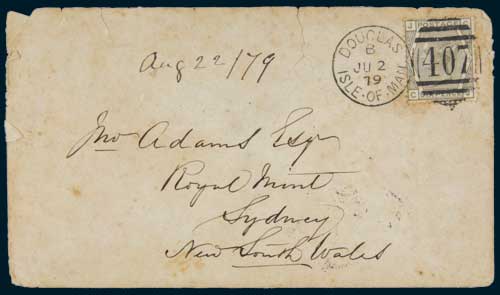 Aug 22/79
DOUGLAS
B
JU 2
79
ISLE-OF-MAN
J POSTAGE C
407
C SIXPENCE J
Mr Adams Esqr
Royal Mint
Sydney
New South Wales